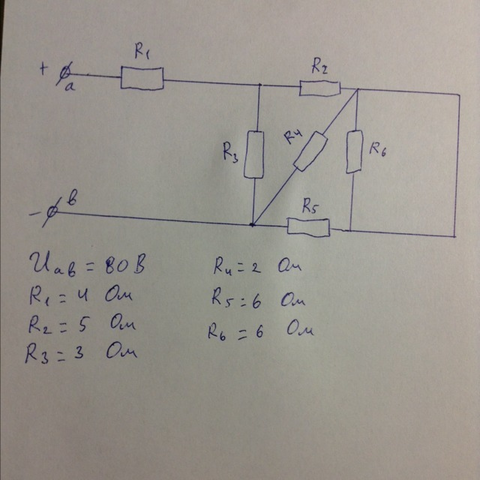 R₁
+
a
R₂
R₃
R₄
R₆
R₅
− b
Uab = 80 В
R₁ = 4 Ом
R₂ = 5 Ом
R₃ = 3 Ом
R₄ = 2 Ом
R₅ = 6 Ом
R₆ = 6 Ом